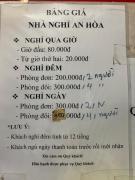 BẢNG GIÁ
NHÀ NGHỈ AN HÒA
* NGHỈ QUA GIỜ
- Giờ đầu: 80.000đ
- Từ giờ thứ hai: 20.000đ
* NGHỈ ĐÊM
- Phòng đơn: 200.000đ/2 người
- Phòng đôi: 300.000đ/4 "
* NGHỈ NGÀY
- Phòng đơn: 300.000đ/2 N
- Phòng đôi: 400.000đ/4 người
*LƯU Ý:
- Khách nghỉ đêm tính từ 12 tiếng
- Khách ngủ ngày thanh toán trước rồi mới nghỉ.
Xin cảm ơn Quý khách!
Hân hạnh được phục vụ Quý khách!